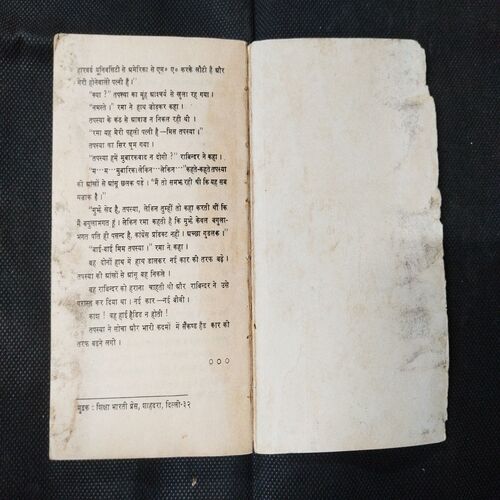 हारवर्ड यूनिवर्सिटी से अमेरिका से एम० ए० करके लौटी है और
मेरी होनेवाली पत्नी है।"
"क्या ?" तपस्या का मुंह आश्चर्य से खुला रह गया।
"नमस्ते।" रमा ने हाथ जोड़कर कहा।
तपस्या के कंठ से आवाज न निकल रही थी।
"रमा यह मेरी पहली पत्नी है—मिस तपस्या।"
तपस्या का सिर घूम गया।
"तपस्या हमें मुबारकबाद न दोगी ?" राविन्दर ने कहा।
"म···म···मुबारिक।लेकिन···लेकिन···"कहते-कहते तपस्या
की आंखों से आंसू छलक पड़े। "मैं तो समझ रही थी कि यह सब
मजाक है।"
"मुझे खेद है, तपस्या, लेकिन तुम्हीं तो कहा करती थीं कि
मैं बगुलाभगत हूं। लेकिन रमा कहती है कि मुझे केवल बगुला-
भगत पति ही पसन्द है, कांग्रेस प्रेजिडेंट नहीं। अच्छा गुडलक।"
"बाई-बाई मिस तपस्या।" रमा ने कहा।
वह दोनों हाथ में हाथ डालकर नई कार की तरफ बढ़े।
तपस्या की आंखों से आंसू बह निकले।
वह राविन्दर को हराना चाहती थी और राविन्दर ने उसे
परास्त कर दिया था। नई कार—नई बीवी।
काश ! वह हाई हैंडिड न होती !
तपस्या ने सोचा और भारी कदमों में सैंकण्ड हैंड कार को
तरफ बढ़ने लगी।
○○○
मुद्रक : शिक्षा भारती प्रेस, शाहदरा, दिल्ली-३२